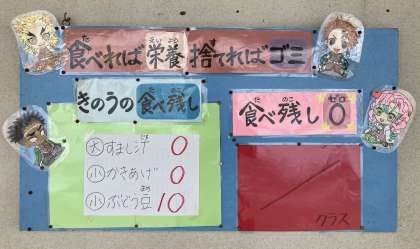 食べれば栄養捨てればゴミ
きのうの食べ残し
大すまし汁 0
小かきあげ 0
小ぶどう豆 10
食べ残し0
クラス